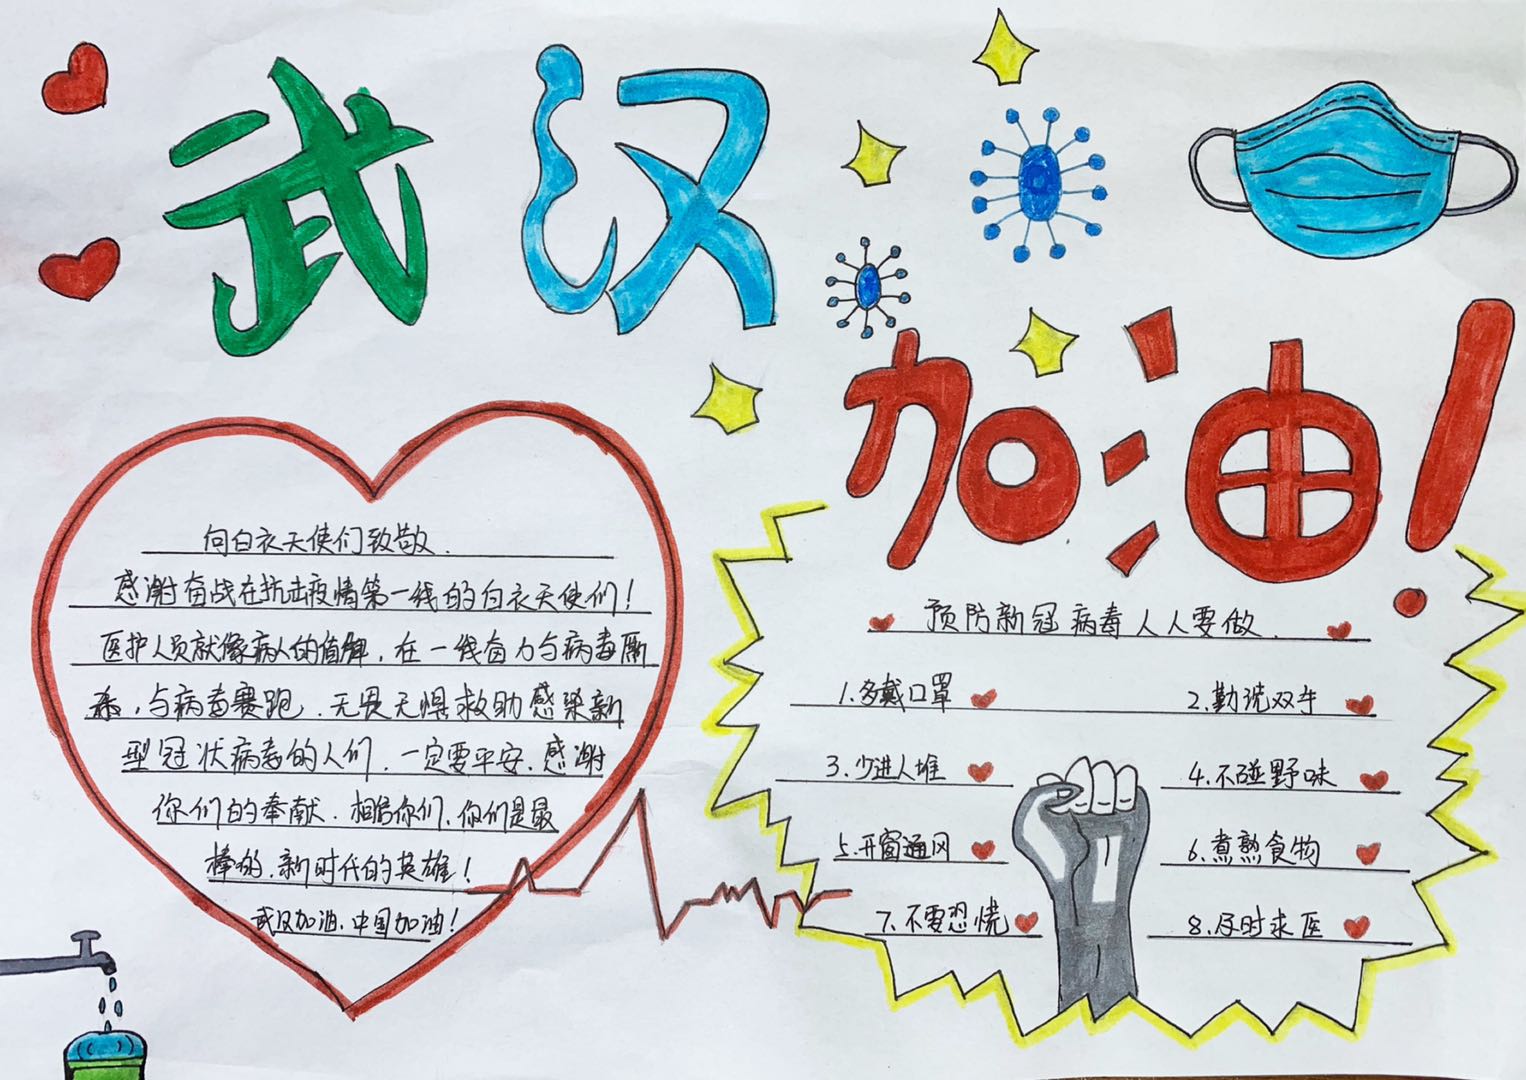 武汉
加油!
向白衣天使们致敬.
感谢奋战在抗击疫情第一线的白衣天使们!
医护人员就像病人的值，在一线奋力与病毒厮
杀，与病毒赛跑，无畏无惧救助感染新
型冠状病毒的人们，一定要平安，感谢
你们的奉献，相信你们，你们是最
棒的，新时代的英雄!
武汉加油，中国加油!
预防新冠病毒人人要做.
1.多戴口罩
2.勤洗双手
3.少进人堆
4.不碰野味
5.开窗通风
6.煮熟食物
7.不要恐慌
8.尽时求医